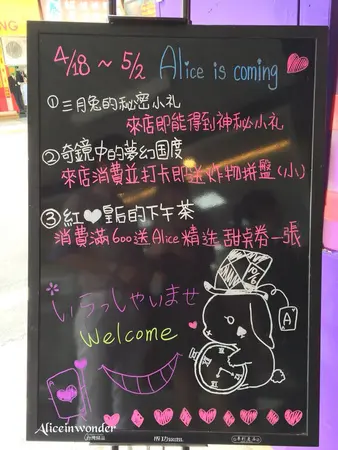 4/18 ~ 5/2 Alice is coming
①三月兔的秘密小礼
來店即能得到神秘小礼
②奇鏡中的夢幻国度
來店消費並打卡即送炸物拼盤(小)
③紅♥皇后的下午茶
消費滿600送Alice精选 甜点券一張
いらっしゃいませ
Welcome
10/6
A
XII
Aliceinwonder